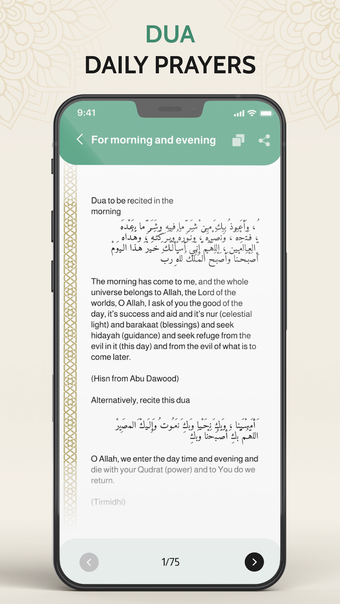 DUA
DAILY PRAYERS
9:41
For morning and evening
Dua to be recited in the
morning
وَأَعُوذُ بِكَ مِنْ شَرِّ مَا فِيهِ وَشَرِّ مَا بَعْدَهُ
، فَتْحَهُ ، وَنَصْرَهُ ، وَنُورَهُ وَبَرَكَتَهُ ، وَهُدَاهُ
الْعَالَمِينَ ، اللَّهُمَّ إِنِّي أَسْأَلُكَ خَيْرَ هَذَا الْيَوْمِ
أَصْبَحْنَا وَأَصْبَحَ الْمُلْكُ لِلَّهِ رَبِّ
The morning has come to me, and the whole
universe belongs to Allah, the Lord of the
worlds, O Allah, I ask of you the good of the
day, it's success and aid and it's nur (celestial
light) and barakaat (blessings) and seek
hidayah (guidance) and seek refuge from the
evil in it (this day) and from the evil of what is to
come later.
(Hisn from Abu Dawood)
Alternatively, recite this dua
أَمْسَيْنَا ، وَبِكَ نَحْيَا وَبِكَ نَمُوتُ وَإِلَيْكَ الْمَصِيرُ
اللَّهُمَّ بِكَ أَصْبَحْنَا وَبِكَ
O Allah, we enter the day time and evening and
die with your Qudrat (power) and to You do we
return.
(Tirmidhi)
1/75